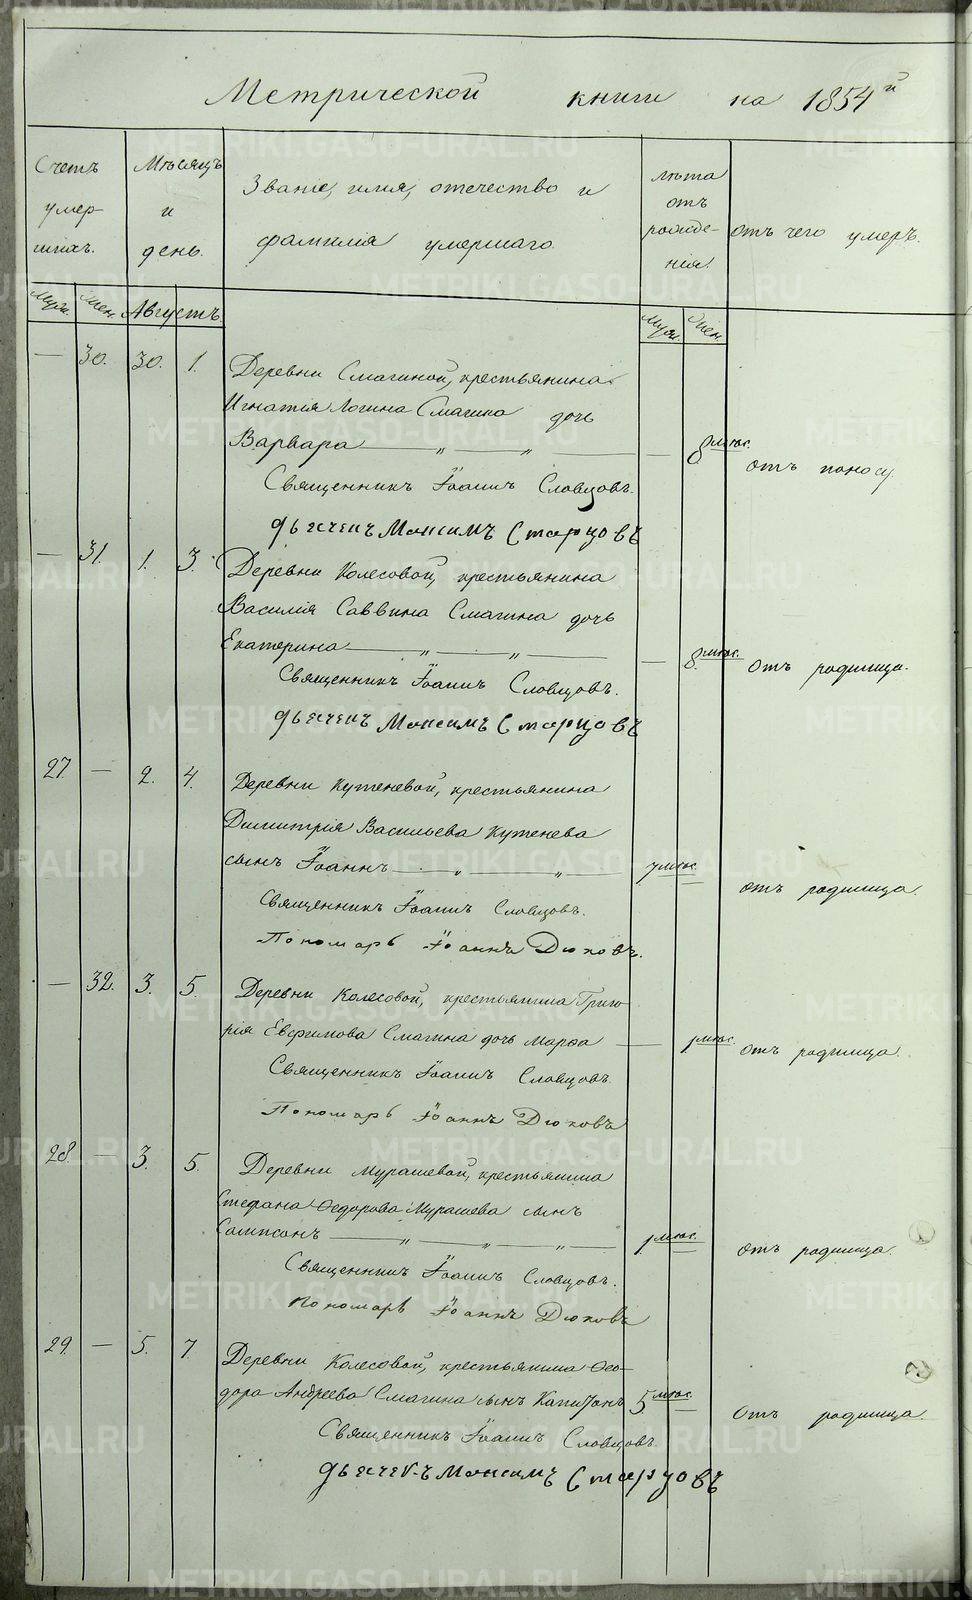 Метрической книги на 1854й
Счетъ умер шихъ.
Мѣсяцъ и день.
Званіе, имя, отечество и фамилія умершаго.
лѣта отъ рожде- нія.
отъ чего умеръ.
Муж. Жен. Августъ. Муж. Жен.
— 30. 30. 1. Деревни Смагиной, крестьянина
Игнатія Логина Смагина дочь
Варвара — „ — „ — — 8 мѣс. отъ поносу.
Священникъ Іоаннъ Словцовъ.
дьячекъ Максимъ Старцовъ
— 31. 1. 3. Деревни Колесовой, крестьянина
Василія Саввина Смагина дочь
Екатерина — „ — „ — — 8. мѣс. отъ родимца.
Священникъ Іоаннъ Словцовъ.
дьячекъ Максимъ Старцовъ
27. — 2. 4. Деревни Кутеневой, крестьянина
Димитрія Васильева Кутенева
сынъ Іоаннъ — „ — „ — 7 мѣс. отъ родимца.
Священникъ Іоаннъ Словцовъ.
Пономарь Іоаннъ Дюковъ.
— 32. 3. 5. Деревни Колесовой, крестьянина Григо
рія Евфимова Смагина дочь Марфа — 1 мѣс. отъ родимца.
Священникъ Іоаннъ Словцовъ.
Пономарь Іоаннъ Дюковъ
28. — 3. 5. Деревни Мурашевой, крестьянина
Стефана Ѳедорова Мурашева сынъ
Сампсонъ — „ — „ — „ — 1 мѣс. отъ родимца.
Священникъ Іоаннъ Словцовъ.
Пономарь Іоаннъ Дюковъ
29. — 5. 7. Деревни Колесовой, крестьянина Ѳео-
дора Андреева Смагина сынъ Капитонъ 5 мѣс. Отъ родимца
Священникъ Іоаннъ Словцовъ.
дьячекъ Максимъ Старцовъ
METRIKI.GASO-URAL.RU